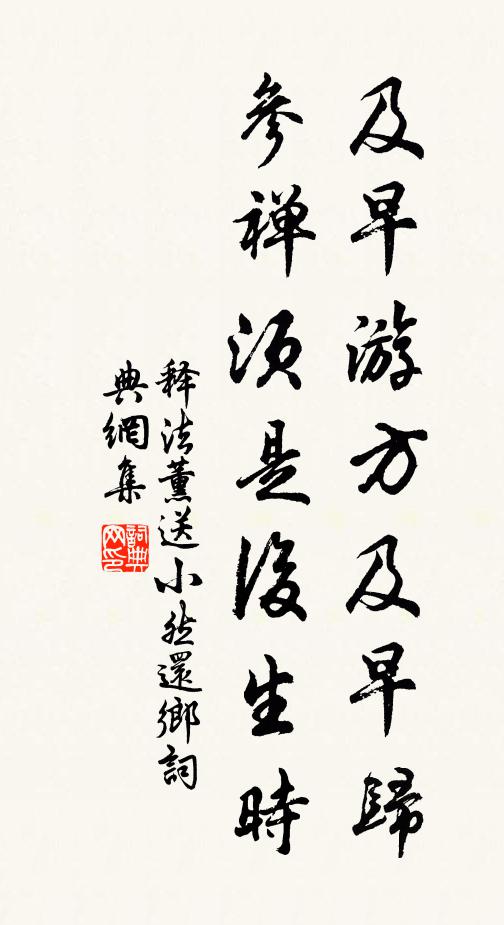 及早游方及早歸
參禅須是後生時
释法薰送小然還鄉詞
典網集
詞典
网印